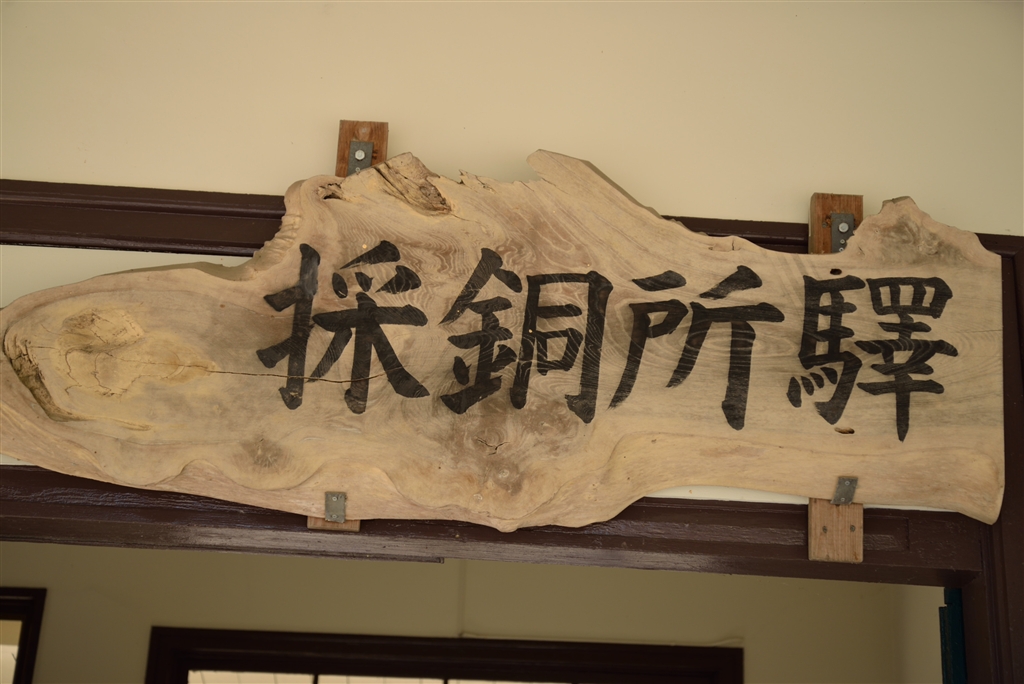 採銅所驛